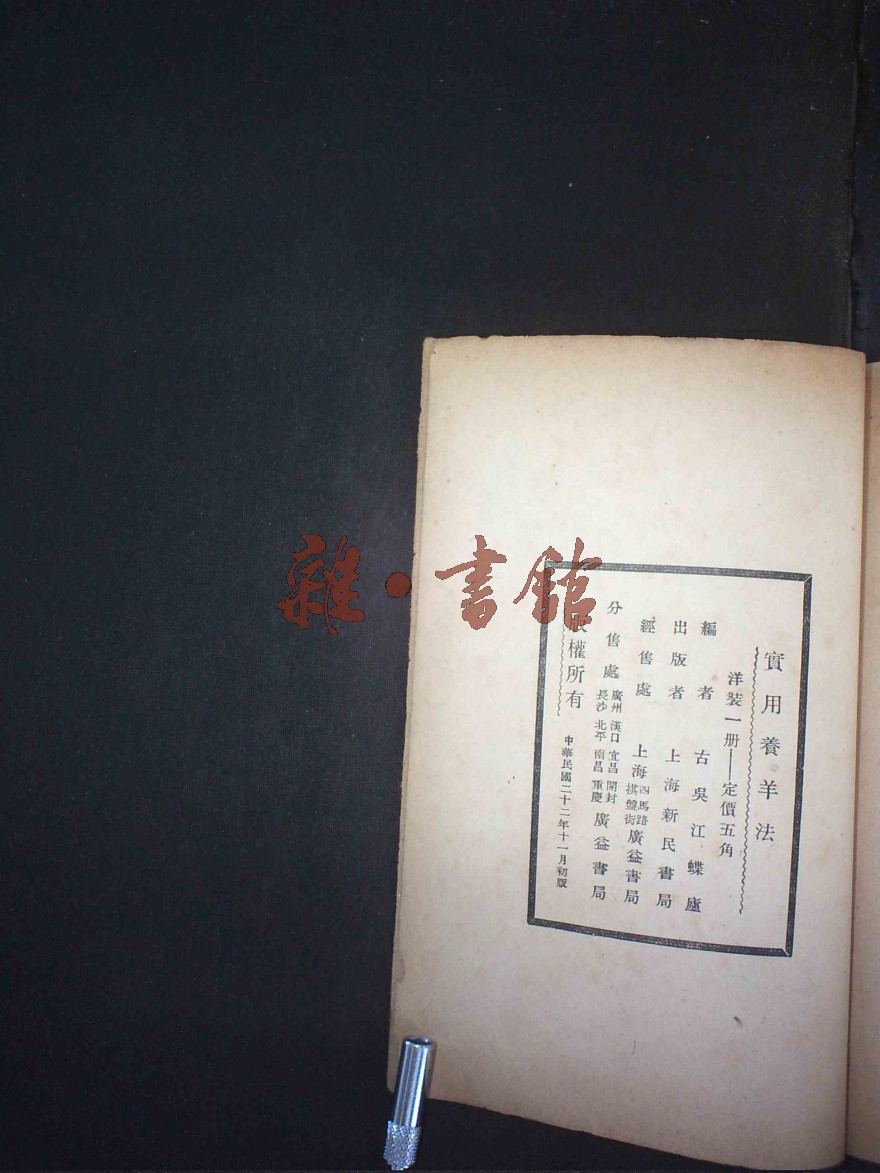 實用養羊法
洋裝一册——定價五角
編者 古吳江蝶廬
出版者 上海新民書局
經售處 上海四馬路棋盤街廣益書局
分售處 廣州 漢口 宜昌 開封 長沙 北平 南昌 重慶 廣益書局
版權所有 中華民國二十二年十一月初版
雜·書館